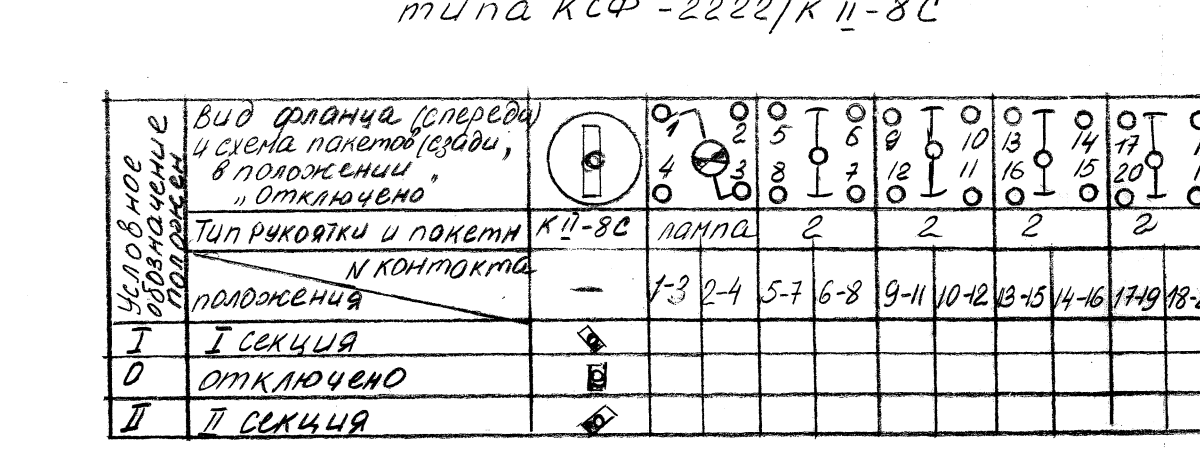 типа КСФ-2222/К II-8С
Условное
обозначение
положен
Вид фланца (спереда)
и схема пакетов (сзади,
в положении
„Отключено"
1 2 5 6 9 10 13 14 17
4 3 8 7 12 11 16 15 20
Тип рукоятки и пакетн К II-8С лампа 2 2 2 2
N контакта
положения — 1-3 2-4 5-7 6-8 9-11 10-12 13-15 14-16 17-19
I I секция
0 отключено
II II секция